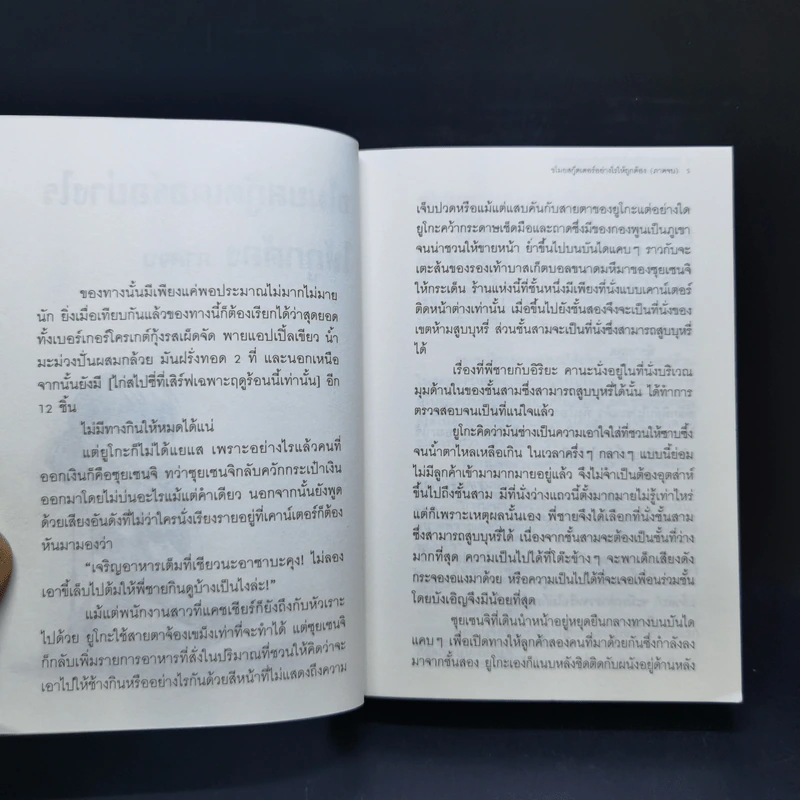 ของทางนั้นมีเพียงแค่พอประมาณไม่มากไม่มาย
นัก ยิ่งเมื่อเทียบกันแล้วของทางนี้ก็ต้องเรียกได้ว่าสุดยอด
ทั้งเบอร์เกอร์โครเกต์กุ้งรสเผ็ดจัด พายแอปเปิ้ลเขียว น้ำ
มะม่วงปั่นผสมกล้วย มันฝรั่งทอด 2 ที่ และนอกเหนือ
จากนั้นยังมี [ไก่สไปซี่ที่เสิร์ฟเฉพาะฤดูร้อนนี้เท่านั้น] อีก
12 ชิ้น
ไม่มีทางกินให้หมดได้แน่
แต่ยูโกะก็ไม่ได้แยแส เพราะอย่างไรแล้วคนที่
ออกเงินก็คือซุยเซนจิ ทว่าซุยเซนจิกลับควักกระเป๋าเงิน
ออกมาโดยไม่บ่นอะไรแม้แต่คำเดียว นอกจากนั้นยังพูด
ด้วยเสียงอันดังที่ไม่ว่าใครนั่งเรียงรายอยู่ที่เคาน์เตอร์ก็ต้อง
หันมามองว่า
"เจริญอาหารเต็มที่เชียวนะอาซาบะคุง! ไม่ลอง
เอาขี้เล็บไปต้มให้พี่ชายกินดูบ้างเป็นไงล่ะ!"
แม้แต่พนักงานสาวที่แคชเชียร์ก็ยังถึงกับหัวเราะ
ไปด้วย ยูโกะใช้สายตาจ้องเขม็งเท่าที่จะทำได้ แต่ซุยเซนจิ
ก็กลับเพิ่มรายการอาหารที่สั่งในปริมาณที่ชวนให้คิดว่าจะ
เอาไปให้ช้างกินหรืออย่างไรกันด้วยสีหน้าที่ไม่แสดงถึงความ
ขโมยสกู๊ตเตอร์อย่างไรให้ถูกต้อง (ภาคจบ) 5
เจ็บปวดหรือแม้แต่แสบคันกับสายตาของยูโกะแต่อย่างใด
ยูโกะคว้ากระดาษเช็ดมือและถาดซึ่งมีของกองพูนเป็นภูเขา
จนน่าชวนให้ขายหน้า ย่ำขึ้นไปบนบันไดแคบๆ ราวกับจะ
เตะส้นของรองเท้าบาสเก็ตบอลขนาดมหึมาของซุยเซนจิ
ให้กระเด็น ร้านแห่งนี้ที่ชั้นหนึ่งมีเพียงที่นั่งแบบเคาน์เตอร์
ติดหน้าต่างเท่านั้น เมื่อขึ้นไปยังชั้นสองจึงจะเป็นที่นั่งของ
เขตห้ามสูบบุหรี่ ส่วนชั้นสามจะเป็นที่นั่งซึ่งสามารถสูบบุหรี่
ได้
เรื่องที่พี่ชายกับอิริยะ คานะนั่งอยู่ในที่นั่งบริเวณ
มุมด้านในของชั้นสามซึ่งสามารถสูบบุหรี่ได้นั้น ได้ทำการ
ตรวจสอบจนเป็นที่แน่ใจแล้ว
ยูโกะคิดว่ามันช่างเป็นความเอาใจใส่ที่ชวนให้ซาบซึ้ง
จนน้ำตาไหลเหลือเกิน ในเวลาครึ่งๆ กลางๆ แบบนี้ย่อม
ไม่มีลูกค้าเข้ามามากมายอยู่แล้ว จึงไม่จำเป็นต้องอุตส่าห์
ขึ้นไปถึงชั้นสาม มีที่นั่งว่างแถวนี้ตั้งมากมายไม่รู้เท่าไหร่
แต่ก็เพราะเหตุผลนั้นเอง พี่ชายจึงได้เลือกที่นั่งชั้นสาม
ซึ่งสามารถสูบบุหรี่ได้ เนื่องจากชั้นสามจะต้องเป็นชั้นที่ว่าง
มากที่สุด ความเป็นไปได้ที่โต๊ะข้างๆ จะพาเด็กเสียงดัง
กระจองอแงมาด้วย หรือความเป็นไปได้ที่จะเจอเพื่อนร่วมชั้น
โดยบังเอิญจึงมีน้อยที่สุด
ซุยเซนจิที่เดินนำหน้าอยู่หยุดยืนกลางทางบนบันได
แคบๆ เพื่อเปิดทางให้ลูกค้าสองคนที่มาด้วยกันซึ่งกำลังลง
มาจากชั้นสอง ยูโกะเองก็แนบหลังชิดติดกับผนังอยู่ด้านหลัง